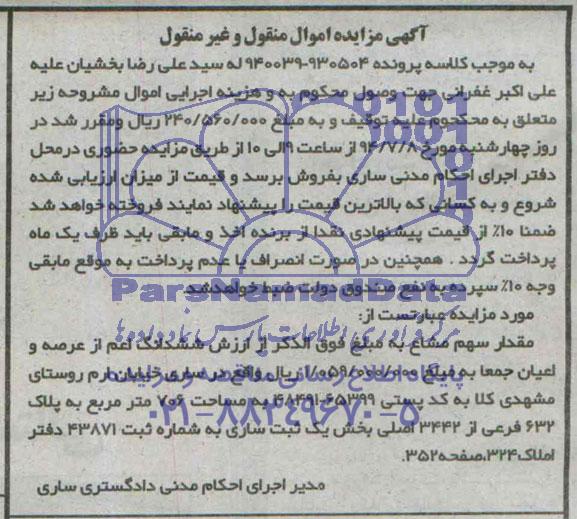 آگهی مزایده اموال منقول و غیر منقول
به موجب کلاسه پرونده ۹۳۰۵۰۴-۹۴۰۰۳۹ له سید علی رضا بخشیان علیه
علی اکبر غفرانی جهت وصول محکوم به و هزینه اجرایی اموال مشروحه زیر
متعلق به محکحوم علیه توقیف و به مبلغ ۲۴۰/۵۶۰/۰۰۰ ریال ومقرر شد در
روز چهارشنبه مورخ ۹۴/۷/۸ از ساعت ۹الی ۱۰ از طریق مزایده حضوری درمحل
دفتر اجرای احکام مدنی ساری بفروش برسد و قیمت از میزان ارزیابی شده
شروع و به کسانی که بالاترین قیمت را پیشنهاد نمایند فروخته خواهد شد
ضمنا ۱۰٪ از قیمت پیشنهادی نقدا از برنده اخذ و مابقی باید ظرف یک ماه
پرداخت گردد . همچنین در صورت انصراف یا عدم پرداخت به موقع مابقی
وجه ۱۰٪ سپرده به نفع صندوق دولت ضبط خواهدشد.
ParsNamadData
مورد مزایده عبارتست از:
مرکز فرآوری اطلاعات پارس نماد داده‌ها
مقدار سهم مشاع به مبلغ فوق الذکر از ارزش ششدانگ اعم از عرصه و
اعیان جمعا به مبلغ ۱/۰۵۹/۰۰۰/۰۰۰ ریال واقع در ساری خیابان ارم روستای
پایگاه اطلاع رسانی مناقصه و مزایده
مشهدی کلا به کد پستی ۶۵۳۹۹-۴۸۴۹۱ به مساحت ۷۰۶ متر مربع به پلاک
۰۲۱-۸۸۳۴۹۶۷۰-۵
۶۳۲ فرعی از ۳۴۴۲ اصلی بخش یک ثبت ساری به شماره ثبت ۴۳۸۷۱ دفتر
املاک۳۲۴،صفحه۳۵۲.
مدیر اجرای احکام مدنی دادگستری ساری